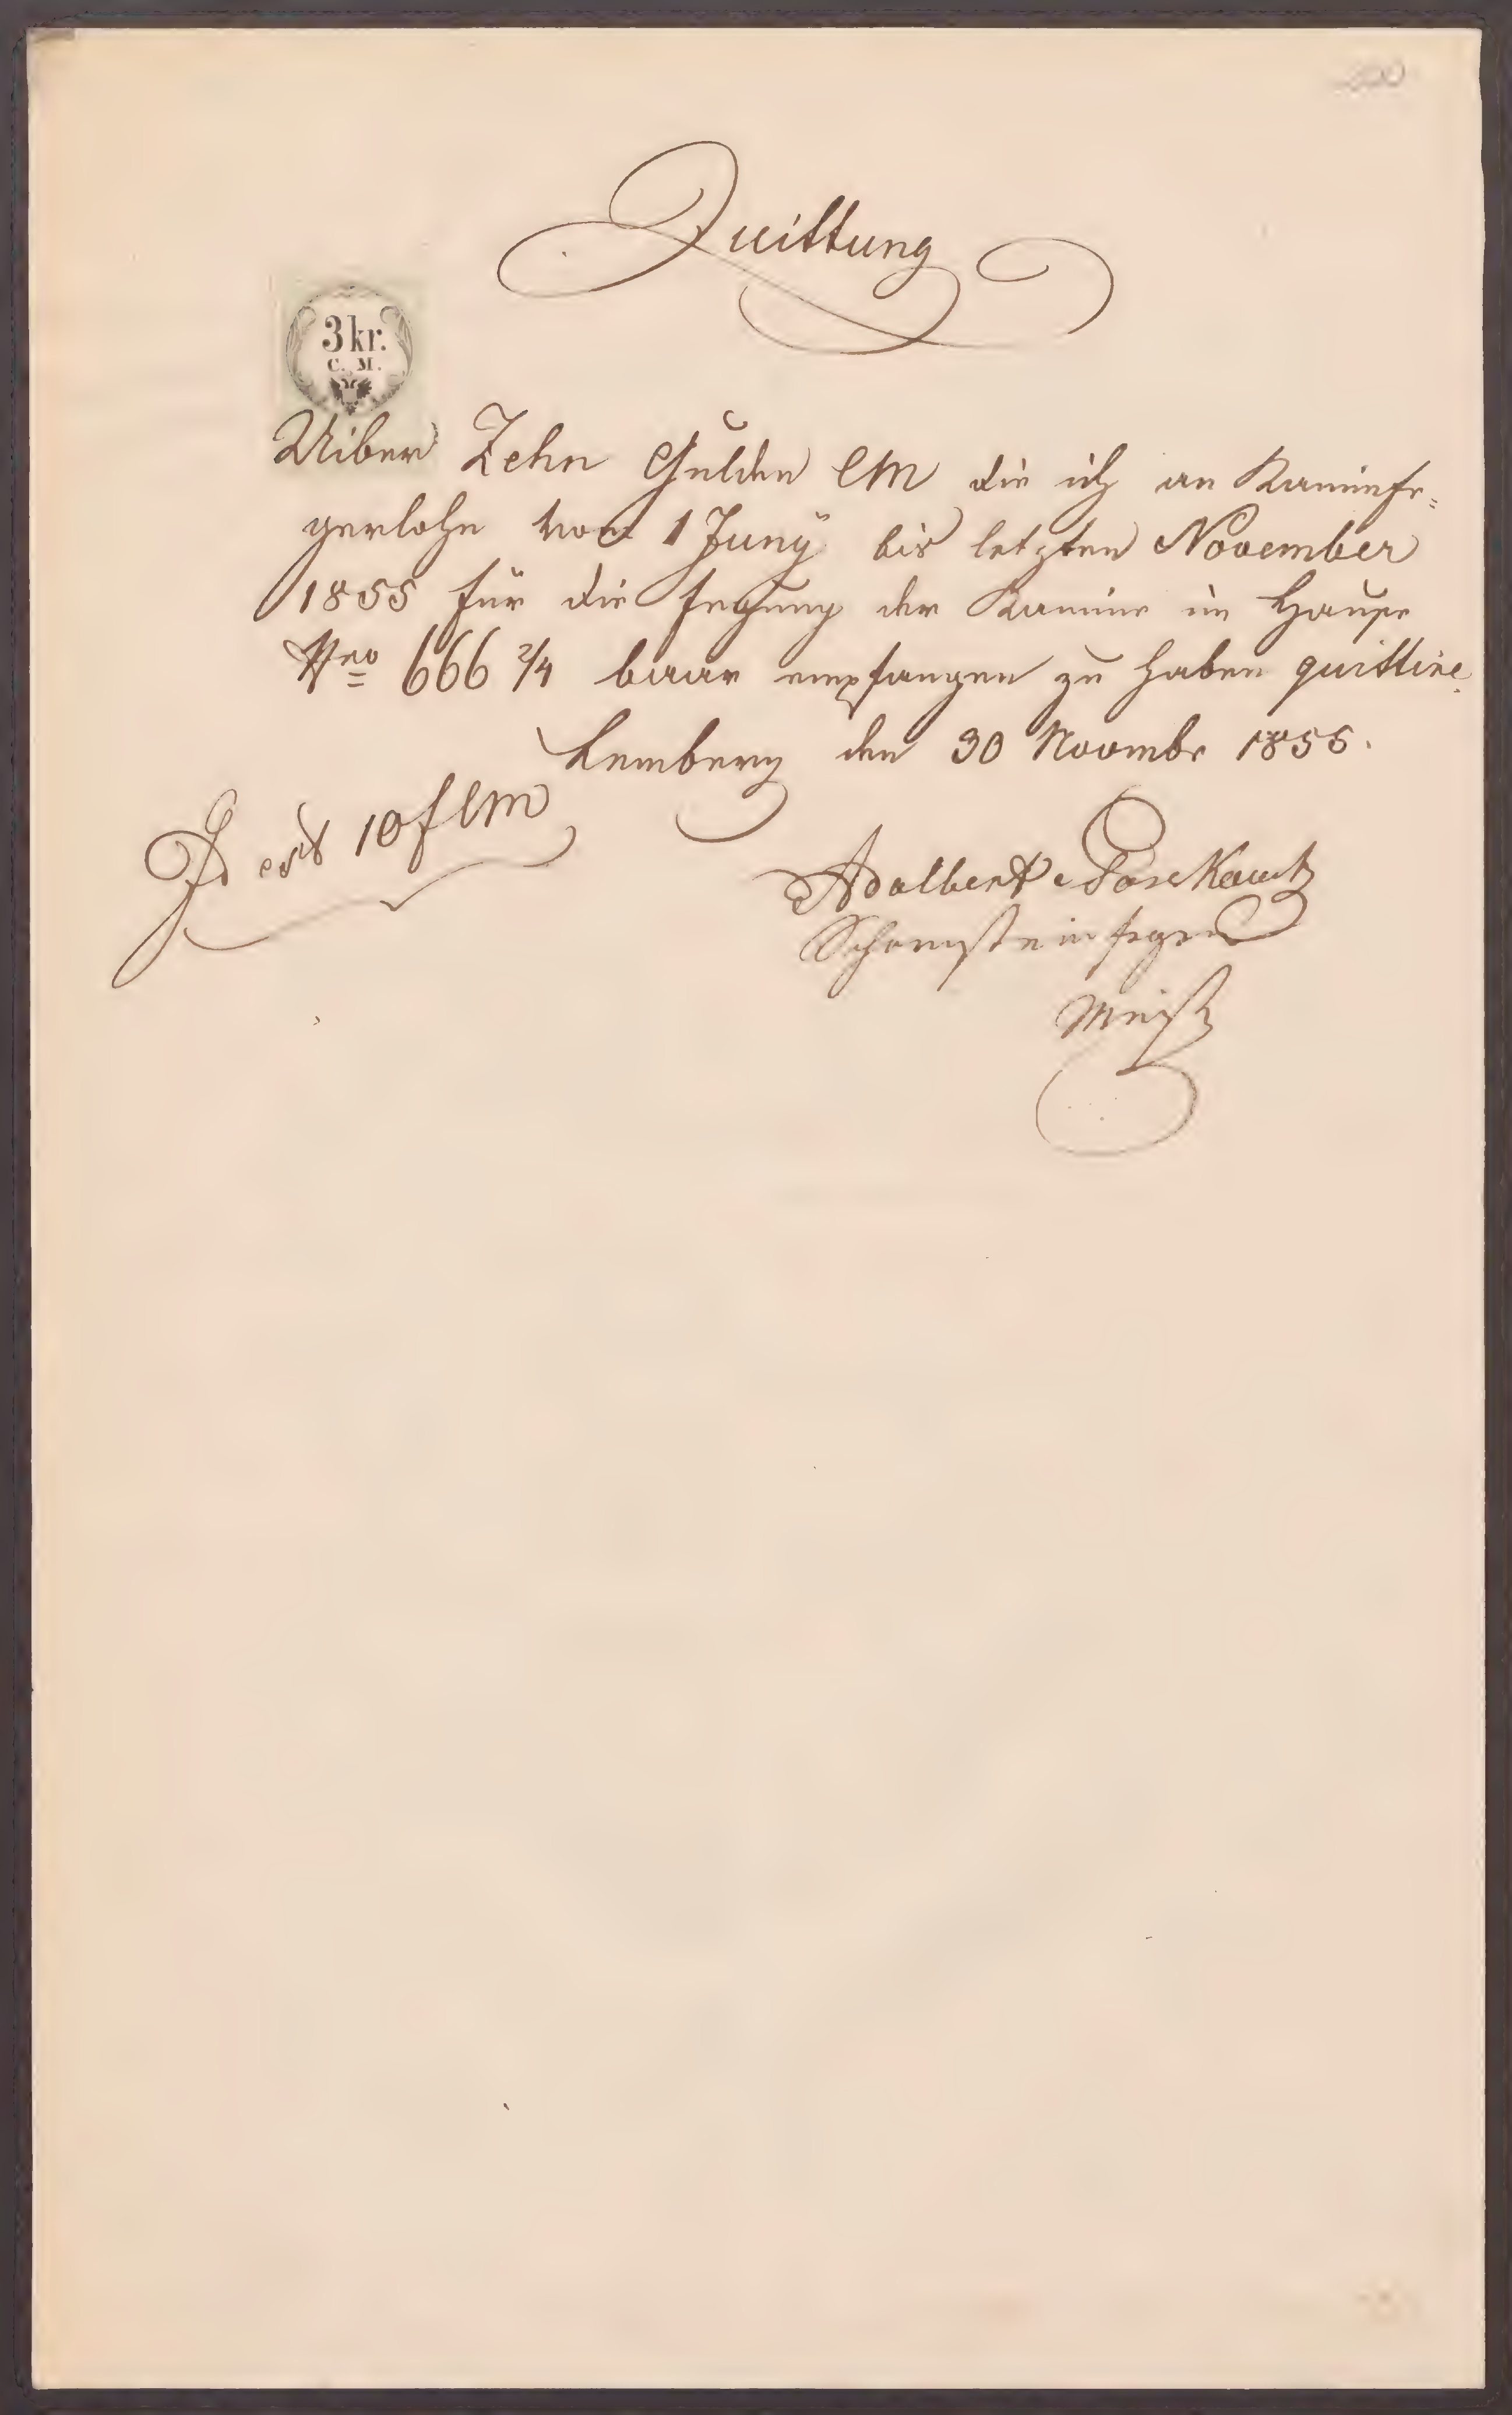 Quittung
3 kr.
C. M.
Uiber Zehn Gulden CM die ich an Kaminfe=
gerlohn von 1 Juny bis letzten November
1855 für die Fegung der Kamine im Hause
Nro 666 2/4 baar empfangen zu haben quittire.
Lemberg den 30 Novembr 1855.
Id est 10 f CM
Adalbert
Schornsteinfeger
Meist